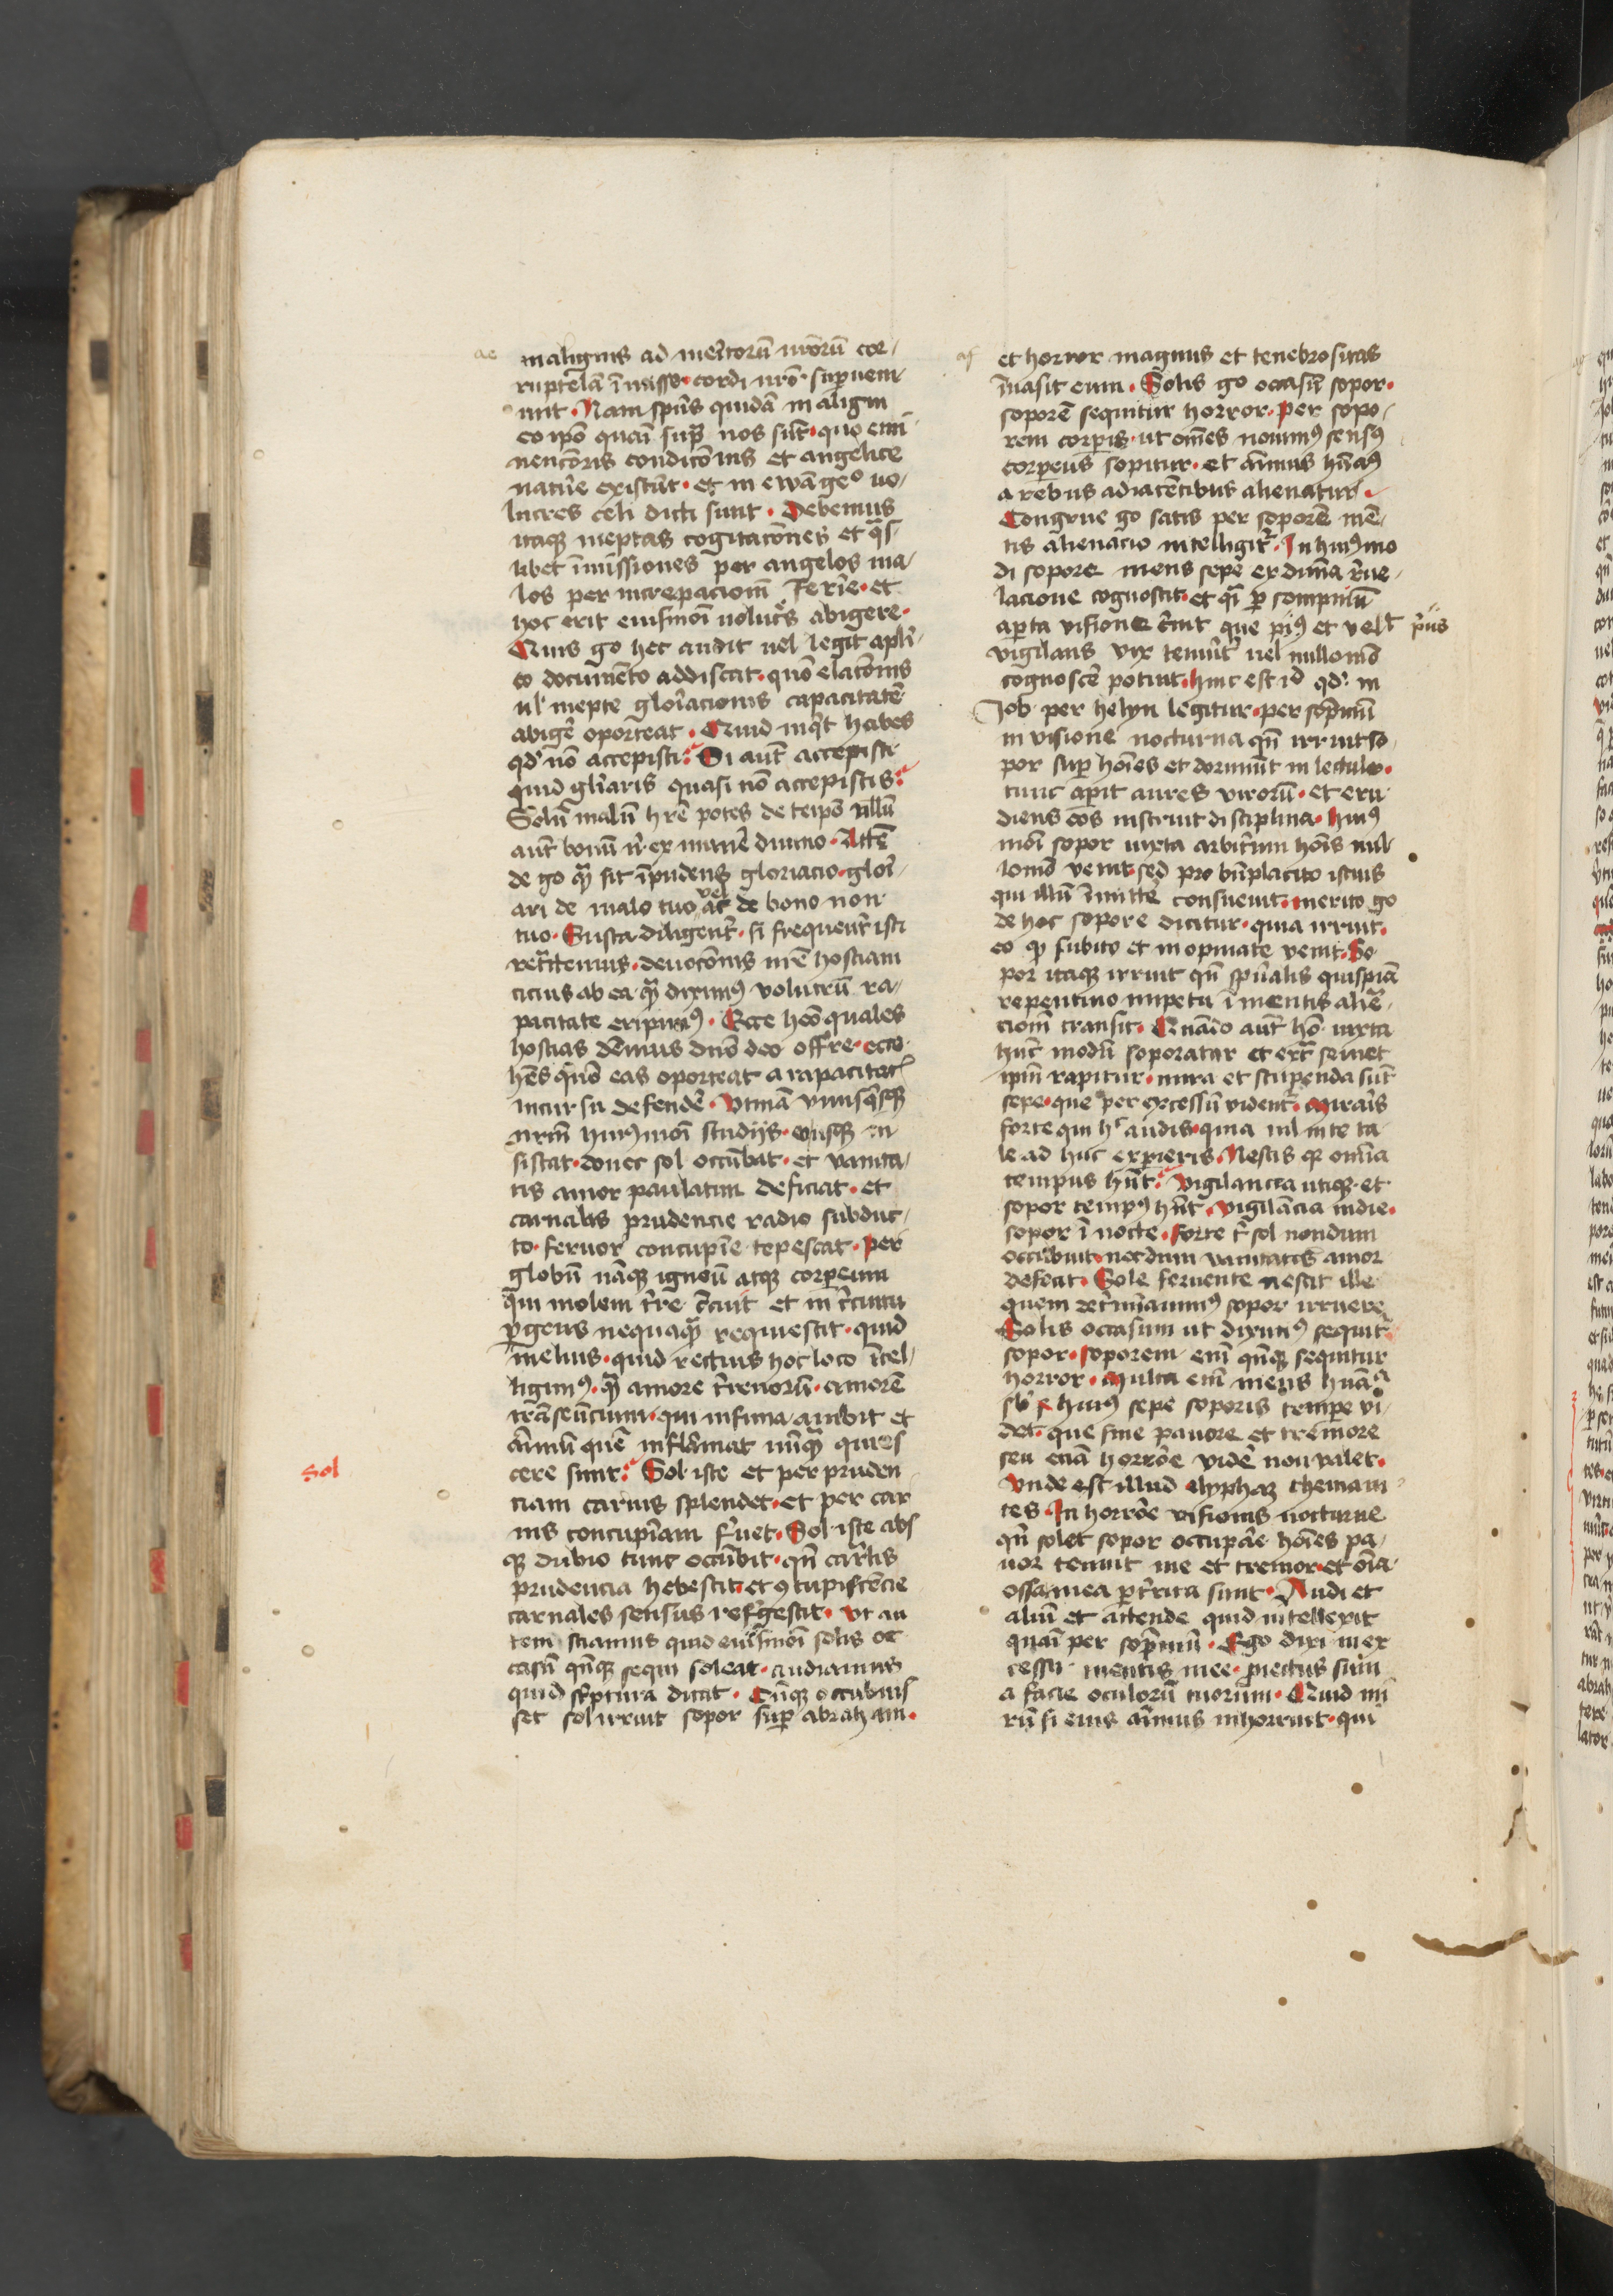 ae
malignis ad meritorū nr̄orū cor-
ruptelā īmisse · cordi nr̄o · superueni-
unt · Nam spūs quidā maligni
eo ipō quasi supͣ nos sūt · quo emi-
nencioris condicōnis et angelice
natūre existūt · et in ewāgeo uo-
lucres celi dicti sunt · Debemus
itaqꝫ ineptas cogitacōnes et qͣs-
libet īmissiones per angelos ma-
los per increpacionē ferire · et
hoc erit eiusmōi volucres abigere ·
Quis go hec audit uel legit apli-
co documēto addiscat · quō elacōnis
ul inepte gloriacionis capacitatē
abigē oporteat · Quid inqͥt habes
qd nō accepisti · Si aūt accepisti
quid gliaris quasi nō acceperis ·
Solū malū hr̄e potes de teipō nllū
aūt bonū nͥ ex munē diuino · Attē-
de go qͣ sit īpudens gloriacio · glori-
ari de malo tuo ac de bono non
tuo · Iuxta diligent̄ · si frequent̄ isti
ret͂temus · deuocōnis nr̄e hostiam
cicius ab ea qͣ diximꝰ volucrū ra-
pacitate eripimꝰ · Ecce heō quales
hostias dēmus dn̄o deo offr̄e · ecce
hēs quō eas oporteat a rapacitat
incursu defendē · Vtinā vnusqͥsqꝫ
nr̄m huiꝰmōi studiis · eousqꝫ in-
sistat · donec sol occūbat · et vanita-
tis amor paulatim deficiat · et
carnalis prudencie radio subduc-
to · feruor concupīe tepescat · per
globū nāqꝫ igneū atqꝫ corpeum
qui molem tr̄re circuit et in circuitu
ꝑgens nequaqͣ requiescit · quid
melius · quid rectius hoc loco ītel-
ligimꝰ · qͣ amore tr̄renorū · amorē
trāseūcium · qui infima ambit et
animū quē inflāmat nūqͣ quies-
cere sinit · Sol iste et per pruden-
ciam carnis splendet · et per car-
nis concupīam feruet · Sol iste abs-
qꝫ dubio tunc occūbit · qn̄ car̄lis
prudencia hebescit · et ꝯcupiscēcie
carnales sensus refͥgescit · Vt au-
tem sciamus quid eiusmōi solis oc-
casū qn̄qꝫ sequi soleat · audiamus
quid scͥptura dicat · Cūqꝫ occubuis-
set sol irruit sopor sup abraham ·
Sol
af
et horror magnus et tenebrositas
īuasit eum · Solis go occasū sopor ·
soporē sequitur horror · per sopo-
rem corpis · ut om̄es nouimꝰ sensꝰ
corpeus sopitur · et animus hūanꝰ
a rebus adiacētibus alienatur ·
Congrue go satis per soporē mē-
tis alienacio intelligitͬ · In huiꝰmo-
di sopore mens sepe ex diuina reue-
lacione cognoscit · et qͣi ꝑ sompniū
aperta visione cernit que pͥꝰ et vel
pͥus
vigilans vix tenuit uel nullomō
cognoscē potuit · hinc est id qd in
Job per helyu legitur · per sompniū
in visione nocturna qn̄ irruit so-
por sup hoīes et dormiūt in lectulo ·
tunc aperit aures virorū · et eru-
diens eos instruit disciplina · huiꝰ
mōi sopor iuxta arbitrium hoīs nul-
lomō venit · sed pro bn̄placito istius
qui illū īmittē consueuit · merito go
de hoc sopore dicitur · quia irruit ·
eo qꝫ subito et inopinate venit · So-
por itaqꝫ irruit qn̄ spūalis quispiā
repentino impetu ī mentis aliena-
cionē transit · Quādo aūt ho iuxta
hunc modū soporatur et extͣ semet
ipm̄ rapitur · mira et stupenda sūt
sepe · que per excessū vident̄ · miraris
forte qui hͨ audis · quia nil in te ta-
le ad huc expieris · Nescis qꝫ omīa
tempus hn̄t · Vigilancia utiqꝫ · et
sopor tempꝰ hn̄t · vigilācia in die ·
sopor ī nocte · forte tͥ sol nondum
occubuit · necdum vanitatis amor
deficit · Sole feruente nescit ille
quem determinauimꝰ sopor irruere
Solis occasum ut diximꝰ sequit̄
sopor · soporem eni qn̄qꝫ sequitur
horror · Multa eni mens humana
sub huiꝰ sepe soporis tempe vi-
det · que sine pauore et tremore
seu eciā horrōe vidē non valet ·
vnde est illud elyphaz themani-
tes In horrōe visionis nocturne
qn̄ solet sopor occupāe hoīes pa-
uor tenuit me et tremor · et oīa
ossa mea ꝑt̄rita sunt · Audi et
aliū et attende quid intellexit
quasi per sopnium · Ego dixi in ex-
cessu mentis mee · proiectus sum
a facie oculorū tuorum · Quid mi-
rū si eius animus inhorruit · qui